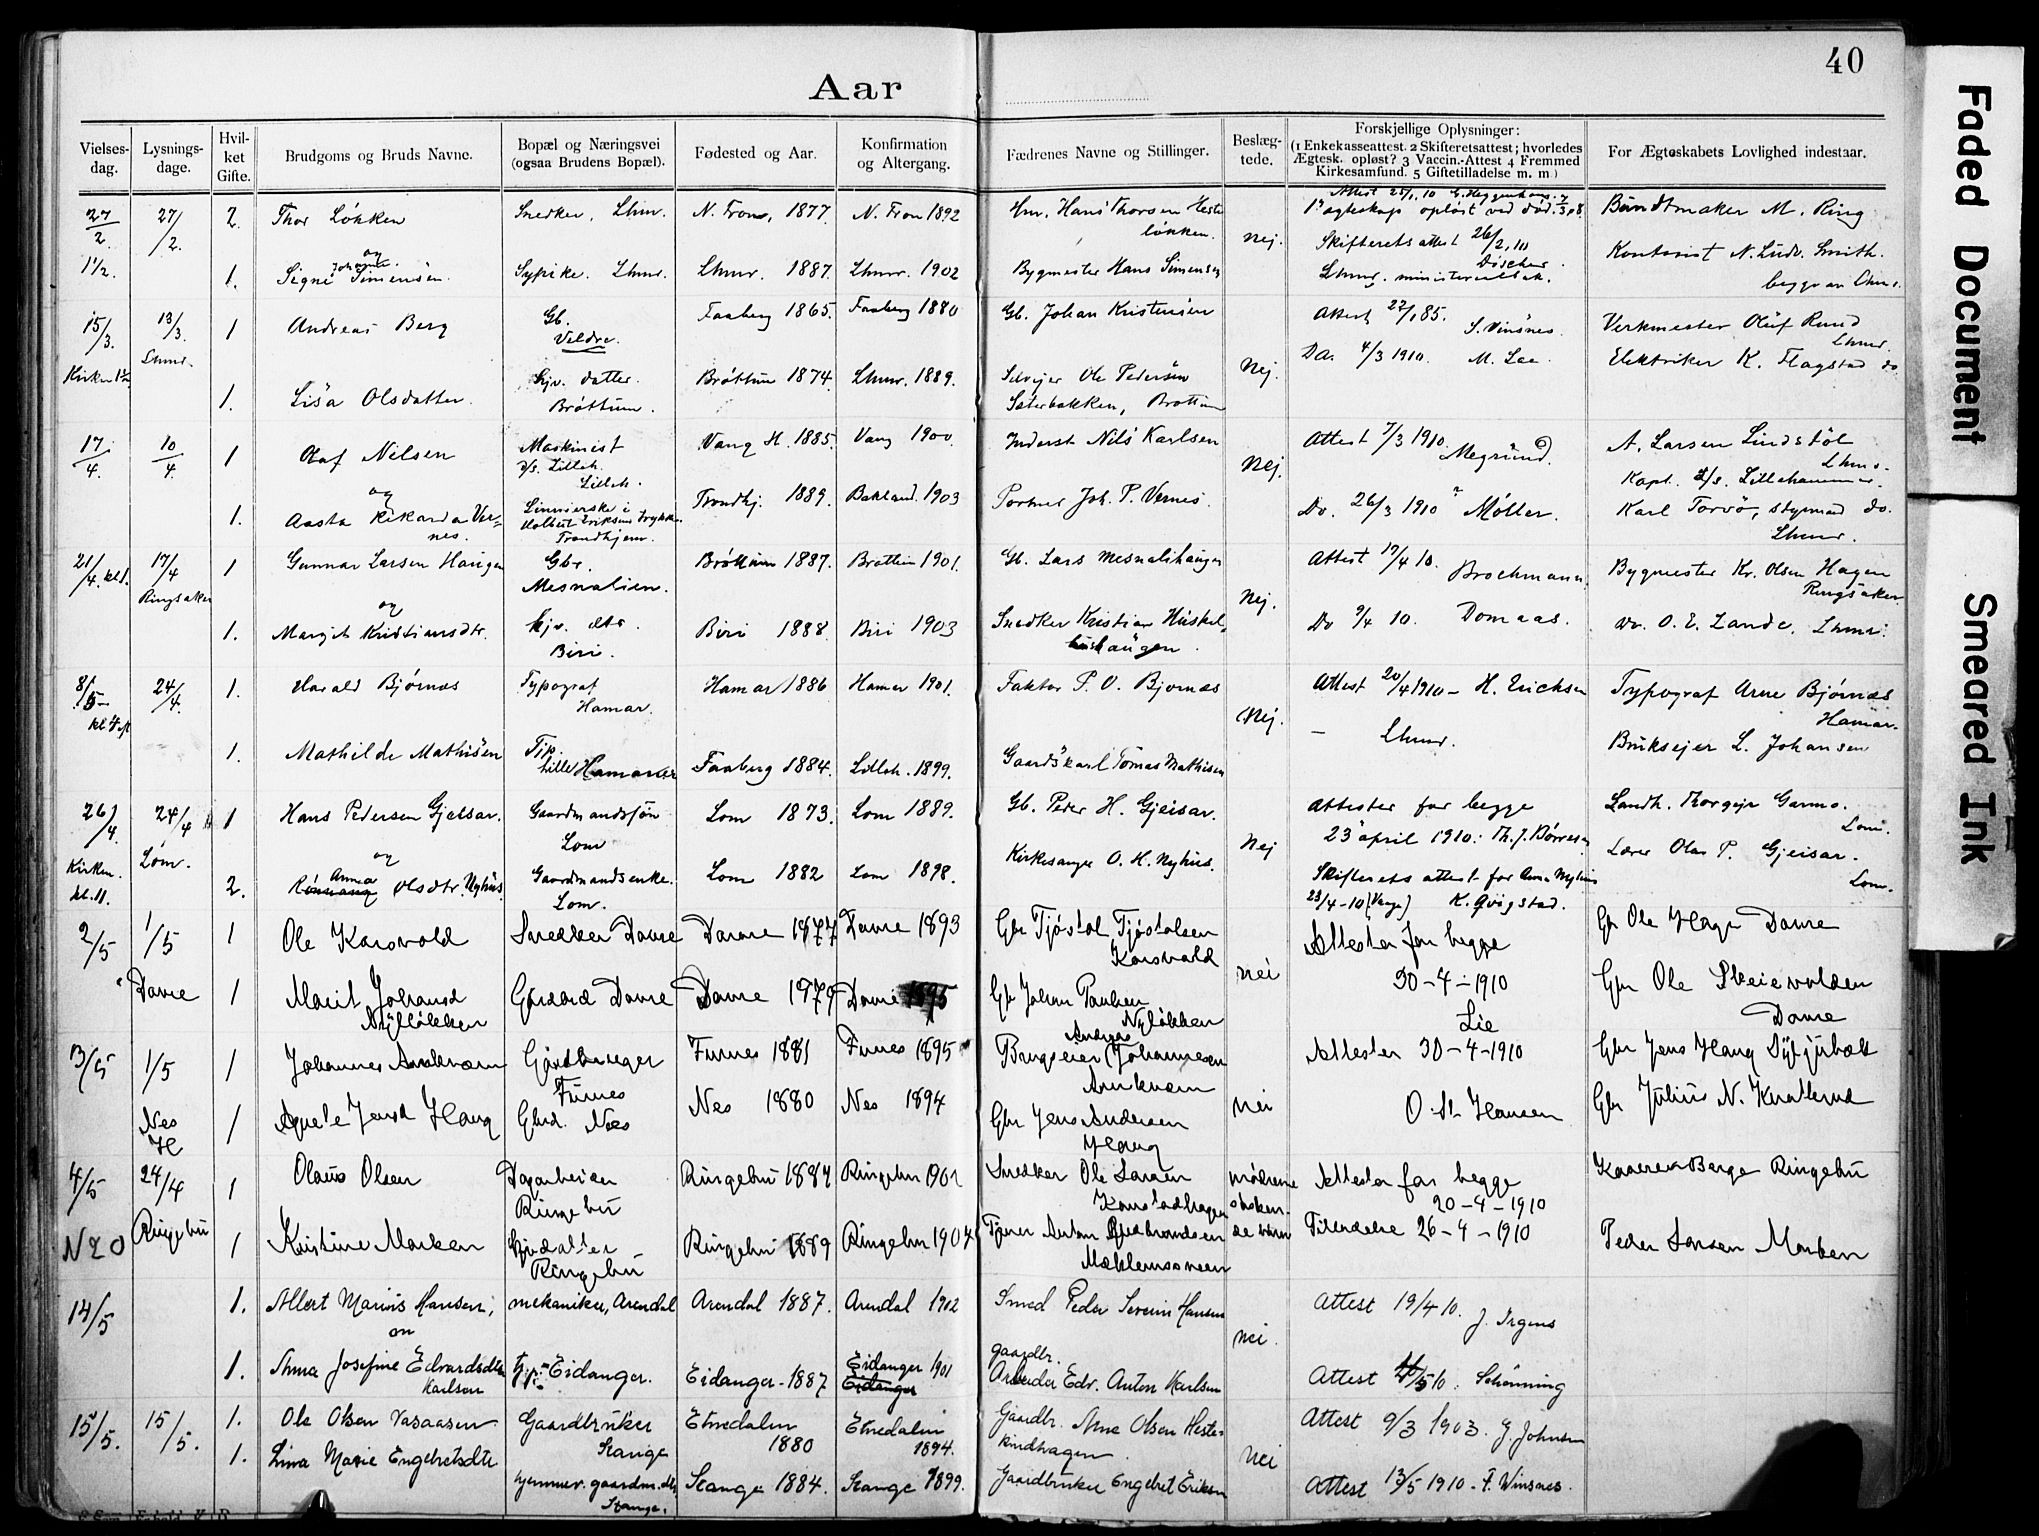 40
Aar
Vielses-
dag.
Lysnings-
dage.
Hvil-
ket
Gifte.
Brudgoms og Bruds Navne.
Bopæl og Næringsvei
(ogsaa Brudens Bopæl).
Fødested og Aar.
Konfirmation
og Altergang.
Fædrenes Navne og Stillinger.
Beslæg-
tede.
Forskjellige Oplysninger:
(1 Enkekasseattest. 2 Skifteretsattest; hvorledes
Ægtesk. opløst? 3 Vaccin.-Attest 4 Fremmed
Kirkesamfund. 5 Giftetilladelse m. m.)
For Ægteskabets Lovlighed indestaar.
27/2. 27/2. 2. Thor Løkken Snedker, Lhmr. N. Fron, 1877. N. Fron 1892 Hans Thorsen
løkken. nej. 1ste ægteskap opløst ved død. Buntmaker M. Ring
Skifteretsattest 26/2, 10
1 1/2. 1. Signe Johanne Simensen Sypike. Lhmr. Lhmr. 1887. Lhmr. 1902 Bygmester Hans Simensen Kontorist N. Ludv. Smith.
begge av Lhmr.
15/3. 13/3. 1 Andreas Berg Gb. Faaberg 1865. Faaberg 1880 Gb. Johan Kristensen Attest S. Vinsnes. Verkmester Oluf Rund
Lhmr. Veldre. Lhmr.
Kirken Nej. Do. 4/3 1910. M. Lae Elektriker K. Flagstad do.
1. Lisa Olsdatter. hjv. datter. Brøttum 1874. Lhmr. 1889. Selvejer Ole Pedersen
Brøttum. Sæterbakken, Brøttum
17/4. 10/4. 1 Olaf Nilsen Maskinist Vang H. 1885. Vang 1900. Inderst Nils Karlsen Nej. Attest 7/3 1910 Megrund. A. Larsen Lindstøl
D/S. Lilleh. Lhmr.
og Lilleh. Kapt. D/S. Lillehammer.
1. Aasta Rikarda Ver- Linnierske i Trondhj. 1889. Bakland. 1903 Portner Joh. P. Vernes. Do. 26/3 1910 Møller. Karl Torvø, styrmand do.
nes. Trondhjem. Lhmr.
21/4. kl 1. 17/4 1 Gunnar Larsen Haugen Gbr. Brøttum 1887. Brøttum 1901. Gb. Lars Mesnalihaugen Nej. Attest 17/4 10. Brochmann. Bygmester Kr. Olsen Hagen
Ringsaker Mesnalien. Ringsaker
og
1. Margit Kristiansdtr. hjv. dtr. Biri 1888. Biri 1903 Snedker Kristian Do 9/4 10. Domaas. do. O. E. Lande, Lhmr.
Biri. haugen.
8/5 24/4. 1. Harald Bjørnæs Typograf Hamar 1886 Hamar 1901. Faktor P. O. Bjørnæs Nej. Attest 20/4 1910 - H. Erichsen Typograf Arne Bjørnæs
Hamar. Hamar.
1. Mathilde Mathisen Lillehammer Faaberg 1884. Lilleh. 1899. Gaardskarl Tomas Mathisen Lhmr. Bruksejer L. Johansen
26/4. 24/4 1 Hans Pedersen Gjeisar. Gaardmandssøn Lom 1873. Lom 1889. Gb. Peder H. Gjeisar. Nej Attester for begge Landh. Thorgejr Garmo.
Kirken Lom. Lom 23 april 1910. Th. J. Børresen Lom.
kl. 11. og
2. Anna Olsdtr. Nyhus. Gaardmandsenke. Lom 1882 Lom 1898. Kirkesanger O. H. Nyhus. Skifterets attest for Anna Nyhus Lærer Olav P. Gjeisar.
Lom. 23/4-10 (Vaage) K. Qvigstad. Lom.
2/5 1/5 1 Ole Korsvold Snedker Dovre Dovre 1877 Dovre 1893 Gbr Tjøstol Tjøstolsen nei Attester for begge Gbr Ole Hage Dovre
Korsvold
Dovre 1 Marit Johansd Gbrdatter Dovre Dovre 1979 Dovre 1895 Gbr Johan Paulsen 30-4-1910 Gbr Ole Skeievolden
Nylökken Nylökken Lie Dovre
3/5 1/5 1 Johannes Arnkværn Gjårdbruger Furnes 1881 Furnes 1895 Brugseier Andreas Johannesen nei Attester 30-4-1910 Gbr Jens Haug Dystjubæk
Furnes Arnkværn
Nes 1 Agnete Jensd Haug Gbrd. Nes Nes 1880 Nes 1894 Gbr Jens Andersen O. St. Hansen Gbr Julius N. Knatterud
H Haug
4/5 24/4 1 Olaus Olsen Dagarbeider Ringebu 1884 Ringebu 1901 Snedker Ole Larsen mødrene Attester for begge Kaarer Berge Ringebu
Ringebu Ringebu Kornstadhagen søsken- 20-4-1910
No 20 1 Kristine Morken Gbrdatter Ringebu 1889 Ringebu 1904 Tjener Anton Gudbrandsen de barn Tilladelse 26-4-1910 Peder Larsen Morken
Ringebu Mæhlumsveen
14/5 1. Albert Marius Hansen, mekaniker, Arendal Arendal 1887. Arendal 1902 Smed Peder Severin Hansen nei. Attest 19/4 10. J. Irgens
og
1. Anna Josefine Edvardsdtr Eidanger. Eidanger - 1887 Eidanger 1901 gaardbr.
Karlsen Eidanger Arbeider Edv. Anton Karlsen Attest 4/5 10. Schønning
15/5. 15/5. 1. Ole Olsen Vasaasen Gaardbruker Etnedalen Etnedalen Gaardbr. Arne Olsen Heste- nei Attest 9/3 1903. G. Johnsen
Stange 1880 1894. kindhagen
1. Lina Marie Engebretsdtr hjemmev. gaardm. dtr. Stange 1884. Stange 1899. Gaardbruker Engebret Eriksen Attest 13/5 1910 - F. Winsnes.
Stange.
Faded Document
Smeared Ink